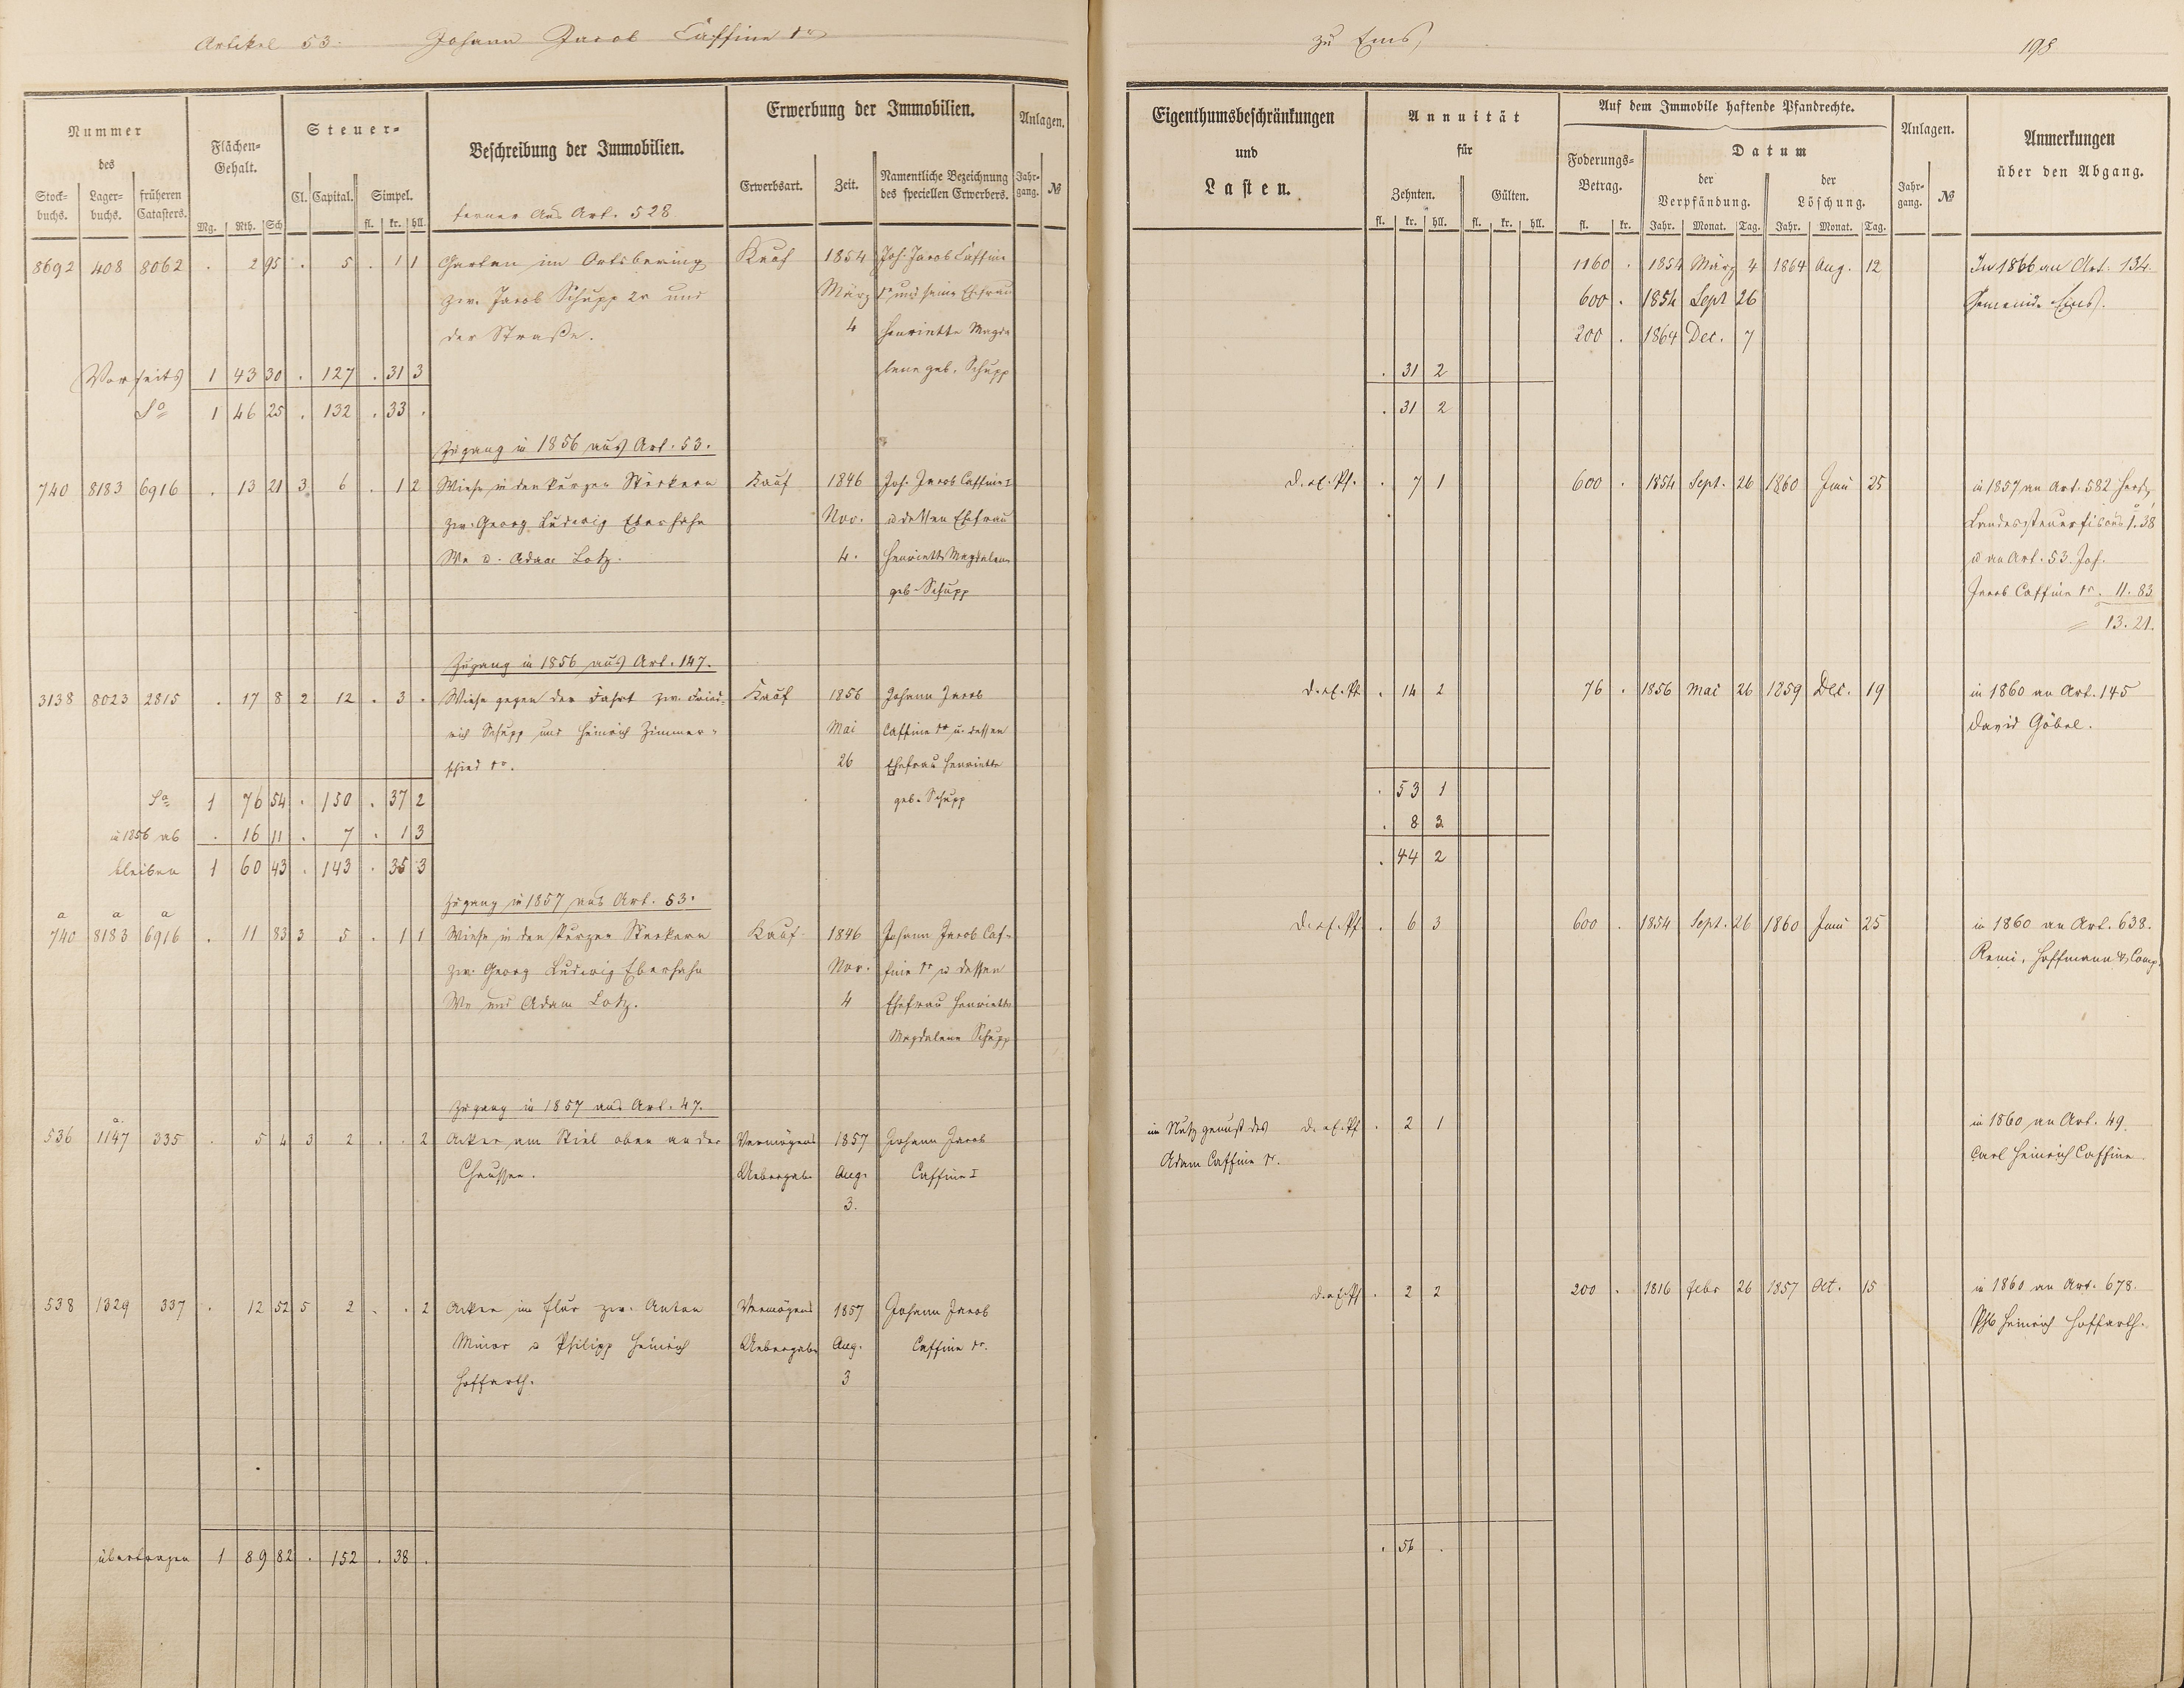 Artikel 53. Johann Jacob Caffine 1r
zu Ems
198
Nummer
des
Stock-
buchs.
Lager-
buchs.
früheren
Catasters.
Flächen-
Gehalt.
Mg. Rth. Sch
Steuer-
Cl. Capital. Simpel.
fl. kr. hll.
Beschreibung der Immobilien.
ferner Aus Art. 528
Erwerbung der Immobilien.
Erwerbsart. Zeit. Namentliche Bezeichnung
des speciellen Erwerbers.
Anlagen.
Jahr-
gang. №
Eigenthumsbeschränkungen
und
Lasten.
Annuität
für
Zehnten. Gülten.
fl. kr. hll. fl. kr. hll.
Auf dem Immobile haftende Pfandrechte.
Foderungs-
Betrag.
fl. kr.
Datum
der
Verpfändung.
der
Löschung.
Jahr. Monat. Tag. Jahr. Monat. Tag.
Anlagen.
Jahr-
gang. №
Anmerkungen
über den Abgang.
8692 408 8062 . 2 95 . 5 . 1 1 Garten im Ortsbering Kauf 1854 Joh. Jacob Caffine 1160 . 1854 März 4 1864 Aug. 12 In 1866 an Art. 134.
zw. Jacob Schupp 2r und März 1r und seine Ehefrau 600 . 1854 Sept 26 Gemeinde Ems.
der Straße. 4 Henriette Magda 200 . 1864 Dec. 7
Vorseits 1 43 30 . 127 . 31 3 lena geb. Schupp . 31 2
Sa 1 46 25 . 132 . 33 . . 31 2
Zugang in 1856 aus Art. 53.
740 8183 6916 . 13 21 3 6 . 1 2 Wiese in den kurzen Kauf 1846 Joh. Jacob Caffine I . 7 1 600 . 1854 Sept. 26 1860 Juni 25 in 1857 an Art. 582
zw. Georg Ludwig Eberhahn Nov. u dessen Ehefrau Landessteuerfiscus 1.38
We u. Adam Lotz. 4. Henriette Magdalena u an Art. 53 Joh.
geb. Schupp Jacob Caffine 1r. 11.83
= 13.21.
Zugang in 1856 aus Art. 147.
3138 8023 2815 . 17 8 2 12 . 3 . Wiese gegen der Fahrt zw. Fried- Kauf 1856 Johann Jacob . 14 2 76 . 1856 Mai 26 1859 Dec. 19 in 1860 an Art. 145
rich Schupp und Heinrich Zimmer- Mai Caffine 1r u. dessen David Göbel.
schied 1r. 26 Ehefrau Henriette
Sa 1 76 54 . 150 . 37 2 geb. Schupp . 53 1
in 1856 ab . 16 11 . 7 . 1 3 . 8 3
bleiben 1 60 43 . 143 . 35 3 . 44 2
Zugang in 1857 aus Art. 53.
a a a
740 8183 6916 . 11 83 3 5 . 1 1 Wiese in den kurzen Kauf 1846 Johann Jacob Caf- . 6 3 600 . 1854 Sept. 26 1860 Juni 25 in 1860 an Art. 638.
zw. Georg Ludwig Eberhahn Nov. fine 1r u dessen Remi, Hoffmann & Comp.
We und Adam Lotz. 4 Ehefrau Henriette
Magdalena Schupp
Zugang in 1857 aus Art. 47.
a
536 1147 335 . 5 4 3 2 . . 2 Acker am Stiel oben an der Vermögens 1857 Johann Jacob im Nutzgenuß des . 2 1 in 1860 an Art. 49.
Chaussee. Uebergabe Aug. Caffine I Adam Caffine 1r. Carl Heinrich Caffine
3.
538 1329 337 . 12 52 5 2 . . 2 Acker im Flur zw. Anton Vermögens 1857 Johann Jacob . 2 2 200 . 1816 Febr 26 1857 Oct. 15 in 1860 an Art. 678.
Minor u Philipp Heinrich Uebergabe Aug. Caffine 1r. Phil Heinrich Hoffarth.
Hoffarth. 3
übertragen 1 89 82 . 152 . 38 . . 56 .